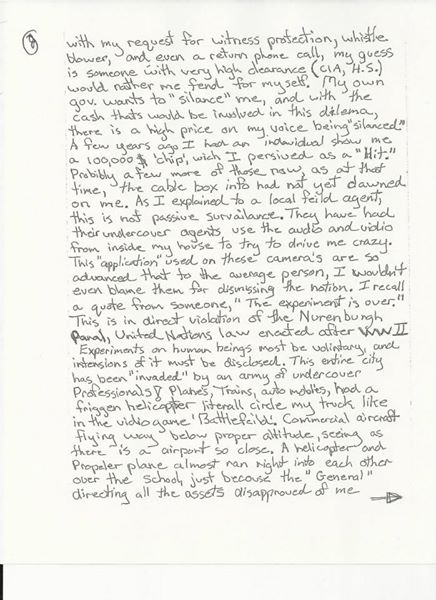 8
with my request for witness protection, whistle
blower, and even a return phone call, my guess
is someone with very high clearance (CIA, H.S.)
would rather me fend for myself. My own
gov. wants to "silance" me, and with the
cash thats would be involved in this dilema,
there is a high price on my voice being "silanced."
A few years ago I had an individual show me
a 100,000$ 'chip', wich I persived as a "Hit."
Probibly a few more of those now, as at that
time, the cable box info had not yet dawned
on me. As I explained to a local feild agent,
this is not passive survailance. They have had
their undercover agents use the audio and vidio
from inside my house to try to drive me crazy.
This "application" used on these camera's are so
advanced that to the average person, I wouldn't
even blame them for dismissing the notion. I recall
a quote from someone, "The experiment is over."
This is in direct violation of the Nurenburgh
United Nations law enacted after WW II
Experiments on human beings must be voluntary, and
intensions of it must be disclosed. This entire city
has been "invaded" by an army of undercover
Professionals! Planes, Trains, auto mobiles, had a
friggen helicopter literall circle my truck like
in the vidio game 'Battlefeild. Commercial aircraft
flying way below proper altitude, seeing as
there is a airport so close. A helicopter and
Propeler plane almost ran right into each other
over the school, just because the "General"
directing all the assets disapproved of me